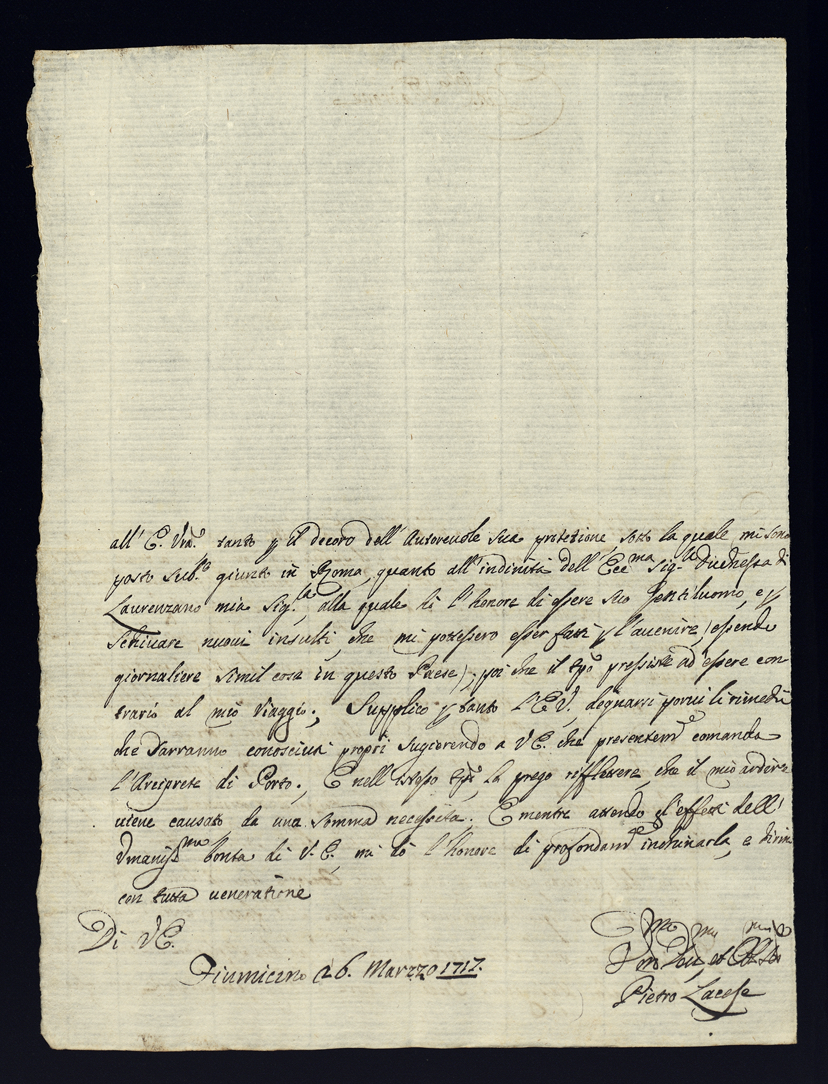 all' E. Vra. tanto p il decoro dell' Autoreuole sua protetione, sotto la quale mi sono
posto sub.o giunto in Roma, quanto all' indinità dell' Ecc.ma Sig.la Duchessa di
Laurenzano mia Sig.la, alla quale hò l'honore di essere suo Gentiluomo, e p
schiuare nuoui insulti, che mi potessero esser fatti p l'auenire, (essendo
giornaliere simil cose in questo Paese), poi che il tpo persiste ad essere con
trario al mio Viaggio; Supplico p tanto l'E V. degnarsi porui li rimedii
che Sarranno conosciuti propri sugierendo a V E. che presentem.e comanda
l'Arciprete di Porto; E nell' istesso tpo la prego riflettere, che il mio ardire
uiene causato da una somma necessità. E mentre attendo gl'effetti dell'
Vmaniss.ma bontà di V. E. mi dò l'honore di profondam.te inchinarla, e
con tutta ueneratione
Di V E.
Fiumicino 26. Marzzo 1717.
Pietro Lacese